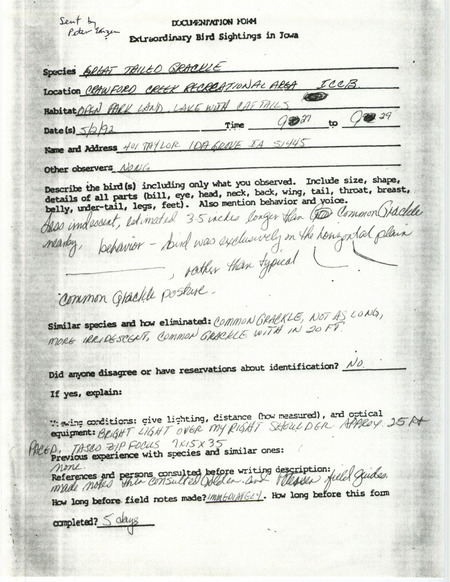 Sent by
Peter
DOCUMENTATION FORM
Extraordinary Bird Sightings in Iowa
Species GREAT TAILED GRACKLE
Location CRAWFORD CREEK RECREATIONAL AREA ICCB
Habitat OPEN PARK LAND, LAKE WITH CATTAILS
Date(s) 5/2/92 Time 9 27 to 9 29
Name and Address 401 TAYLOR IDA GROVE IA 51445
Other observers NONE
Describe the bird(s) including only what you observed. Include size, shape,
details of all parts (bill, eye, head, neck, back, wing, tail, throat, breast,
belly, under-tail, legs, feet). Also mention behavior and voice.
less iridescent, estimated 3.5 inches longer than Common Grackle
nearby, behavior - bird was exclusively on the horizontal plain
, rather than typical
Common Grackle posture.
Similar species and how eliminated: COMMON GRACKLE, NOT AS LONG,
MORE IRRIDESCENT, COMMON GRACKLE WITH IN 20 FT
Did anyone disagree or have reservations about identification? NO
If yes, explain:
Viewing conditions: give lighting, distance (how measured), and optical
equipment: BRIGHT LIGHT OVER MY RIGHT SHOULDER APPROX. 25 Ft
PACED, TASCO ZIP FOCUS 7X15X35
Previous experience with species and similar ones:
none
References and persons consulted before writing description:
made notes then consulted Golden and field guides
How long before field notes made? How long before this form
completed? 5 days